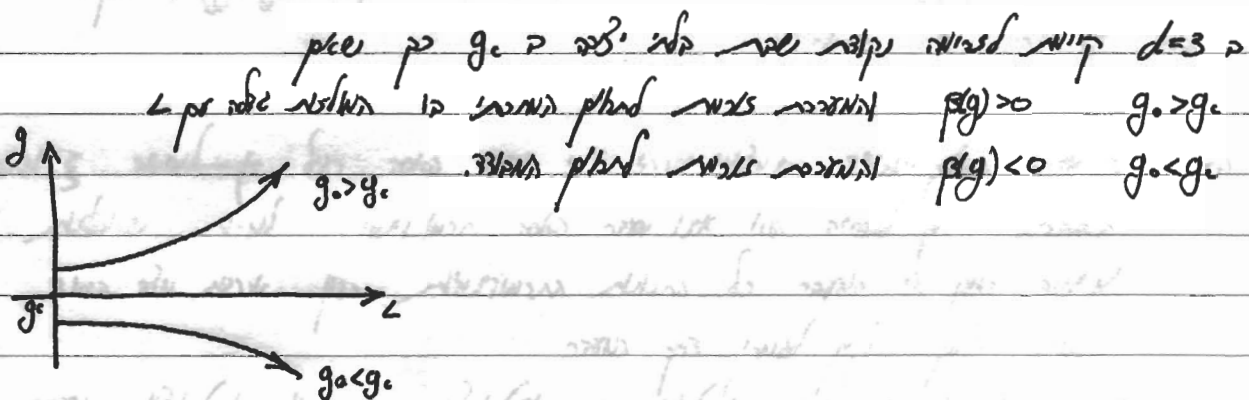 ב d=3 קיימת לזרימה נקודת שבת בלתי יציבה ב g_c כך שאם
g_0>g_c β(g)>0 והמערכת זורמת לתחום המתכתי בו המוליכות גדלה עם L
g_0<g_c β(g)<0 והמערכת זורמת לתחום המבודד.
g
g_0>g_c
g_c
L
g_0<g_c